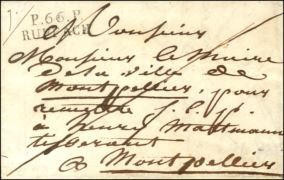 P.66.P
RUFFACH
Monsieur
Monsieur le Maire
de la ville de
Montpellier, pour
remettre s. l. p.
à henry Mattmann
tisserant
à Montpellier